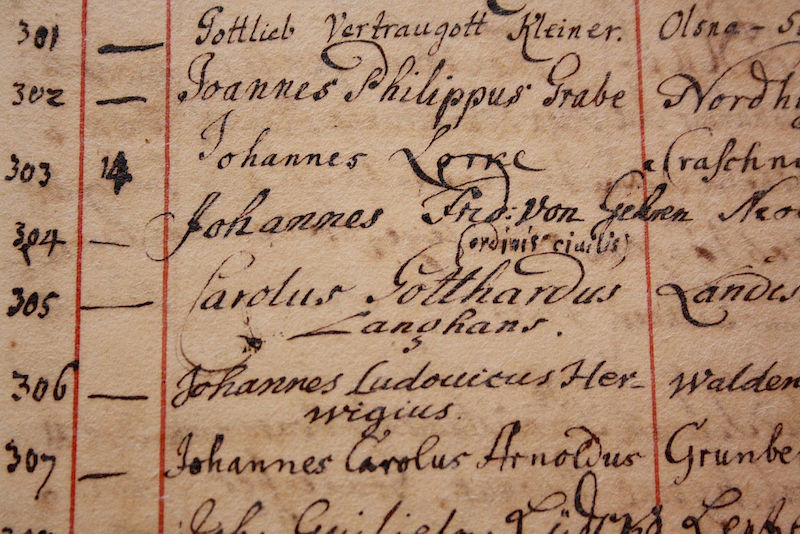 301 — Gottlieb Vertraugott Kleiner. Olsna - S
302 — Joannes Philippus Grabe Nordh
303 14 Johannes Lorke Craschn
304 — Johannes Frid: von Gehren
(ordinis civilis)
305 — Carolus Gotthardus Landes
Langhans.
306 — Johannes Ludovicus Her-
wigius. Walden
307 — Johannes Carolus Arnoldus Grunbe
Joh. Guilielm